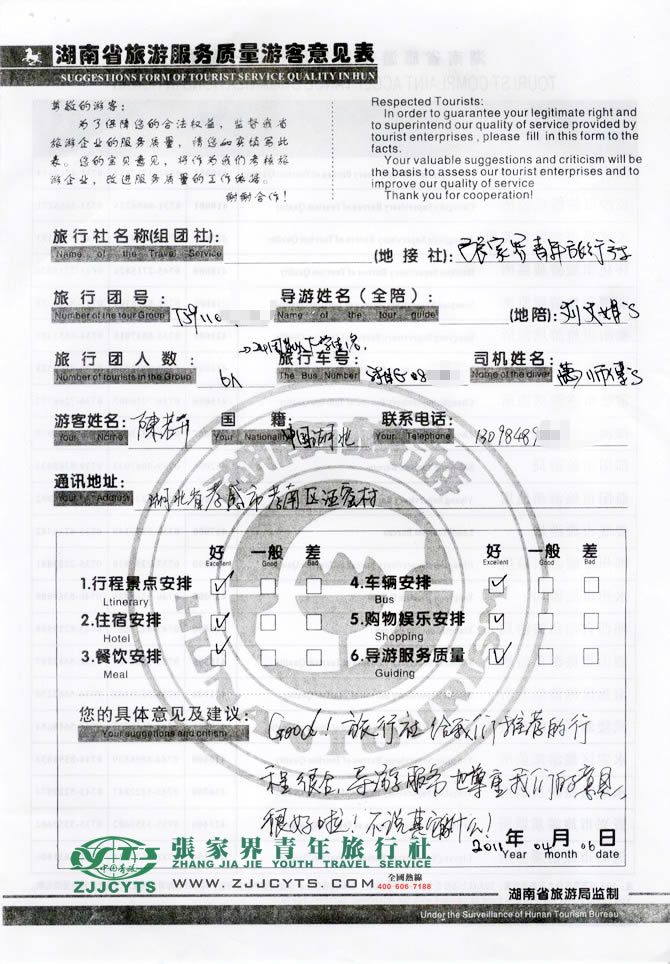 湖南省旅游服务质量游客意见表
SUGGESTIONS FORM OF TOURIST SERVICE QUALITY IN HUN
尊敬的游客:
为了保障您的合法权益,监督我省
旅游企业的服务质量,请您如实填写此
表。您的宝贵意见,将作为我们考核旅
游企业,改进服务质量的工作依据。
谢谢合作!
Respected Tourists:
In order to guarantee your legitimate right and
to superintend our quality of service provided by
tourist enterprises , please fill in this form to the
facts.
Your valuable suggestions and criticism will be
the basis to assess our tourist enterprises and to
improve our quality of service
Thank you for cooperation!
旅行社名称(组团社):
Name of the Travel Service
(地接社): 张家界青年旅行社
旅行团号:
Number of the tour Group
导游姓名(全陪):
Name of the tour guide
(地陪):
旅行团人数:
Number of tourists in the Group
6人
旅行车号:
The Bus Number
司机姓名:
Name of the driver
游客姓名:
Your Name
国籍: 中国湖北
Your Nationality
联系电话: 13098489
Your Telephone
通讯地址: 湖北省孝感市孝南区
Your Address
好 一般 差 好 一般 差
Excellent Good Bad Excellent Good Bad
1.行程景点安排 4.车辆安排
Ltinerary Bus
2.住宿安排 5.购物娱乐安排
Hotel Shopping
3.餐饮安排 6.导游服务质量
Meal Guiding
您的具体意见及建议: Good! 旅行社给我们推荐的行
Your suggestions and critism
程很合,导游服务也尊重我们的意见,
很好啦!不说其它什么!
2011年 04月 06日
Year month date
HUNAN TOURISM
中国青旅
ZJJCYTS
張家界青年旅行社
ZHANG JIA JIE YOUTH TRAVEL SERVICE
WWW.ZJJCYTS.COM
全國熱線
400 606 7188
湖南省旅游局监制
Under the Surveillance of Hunan Tourism Bureau